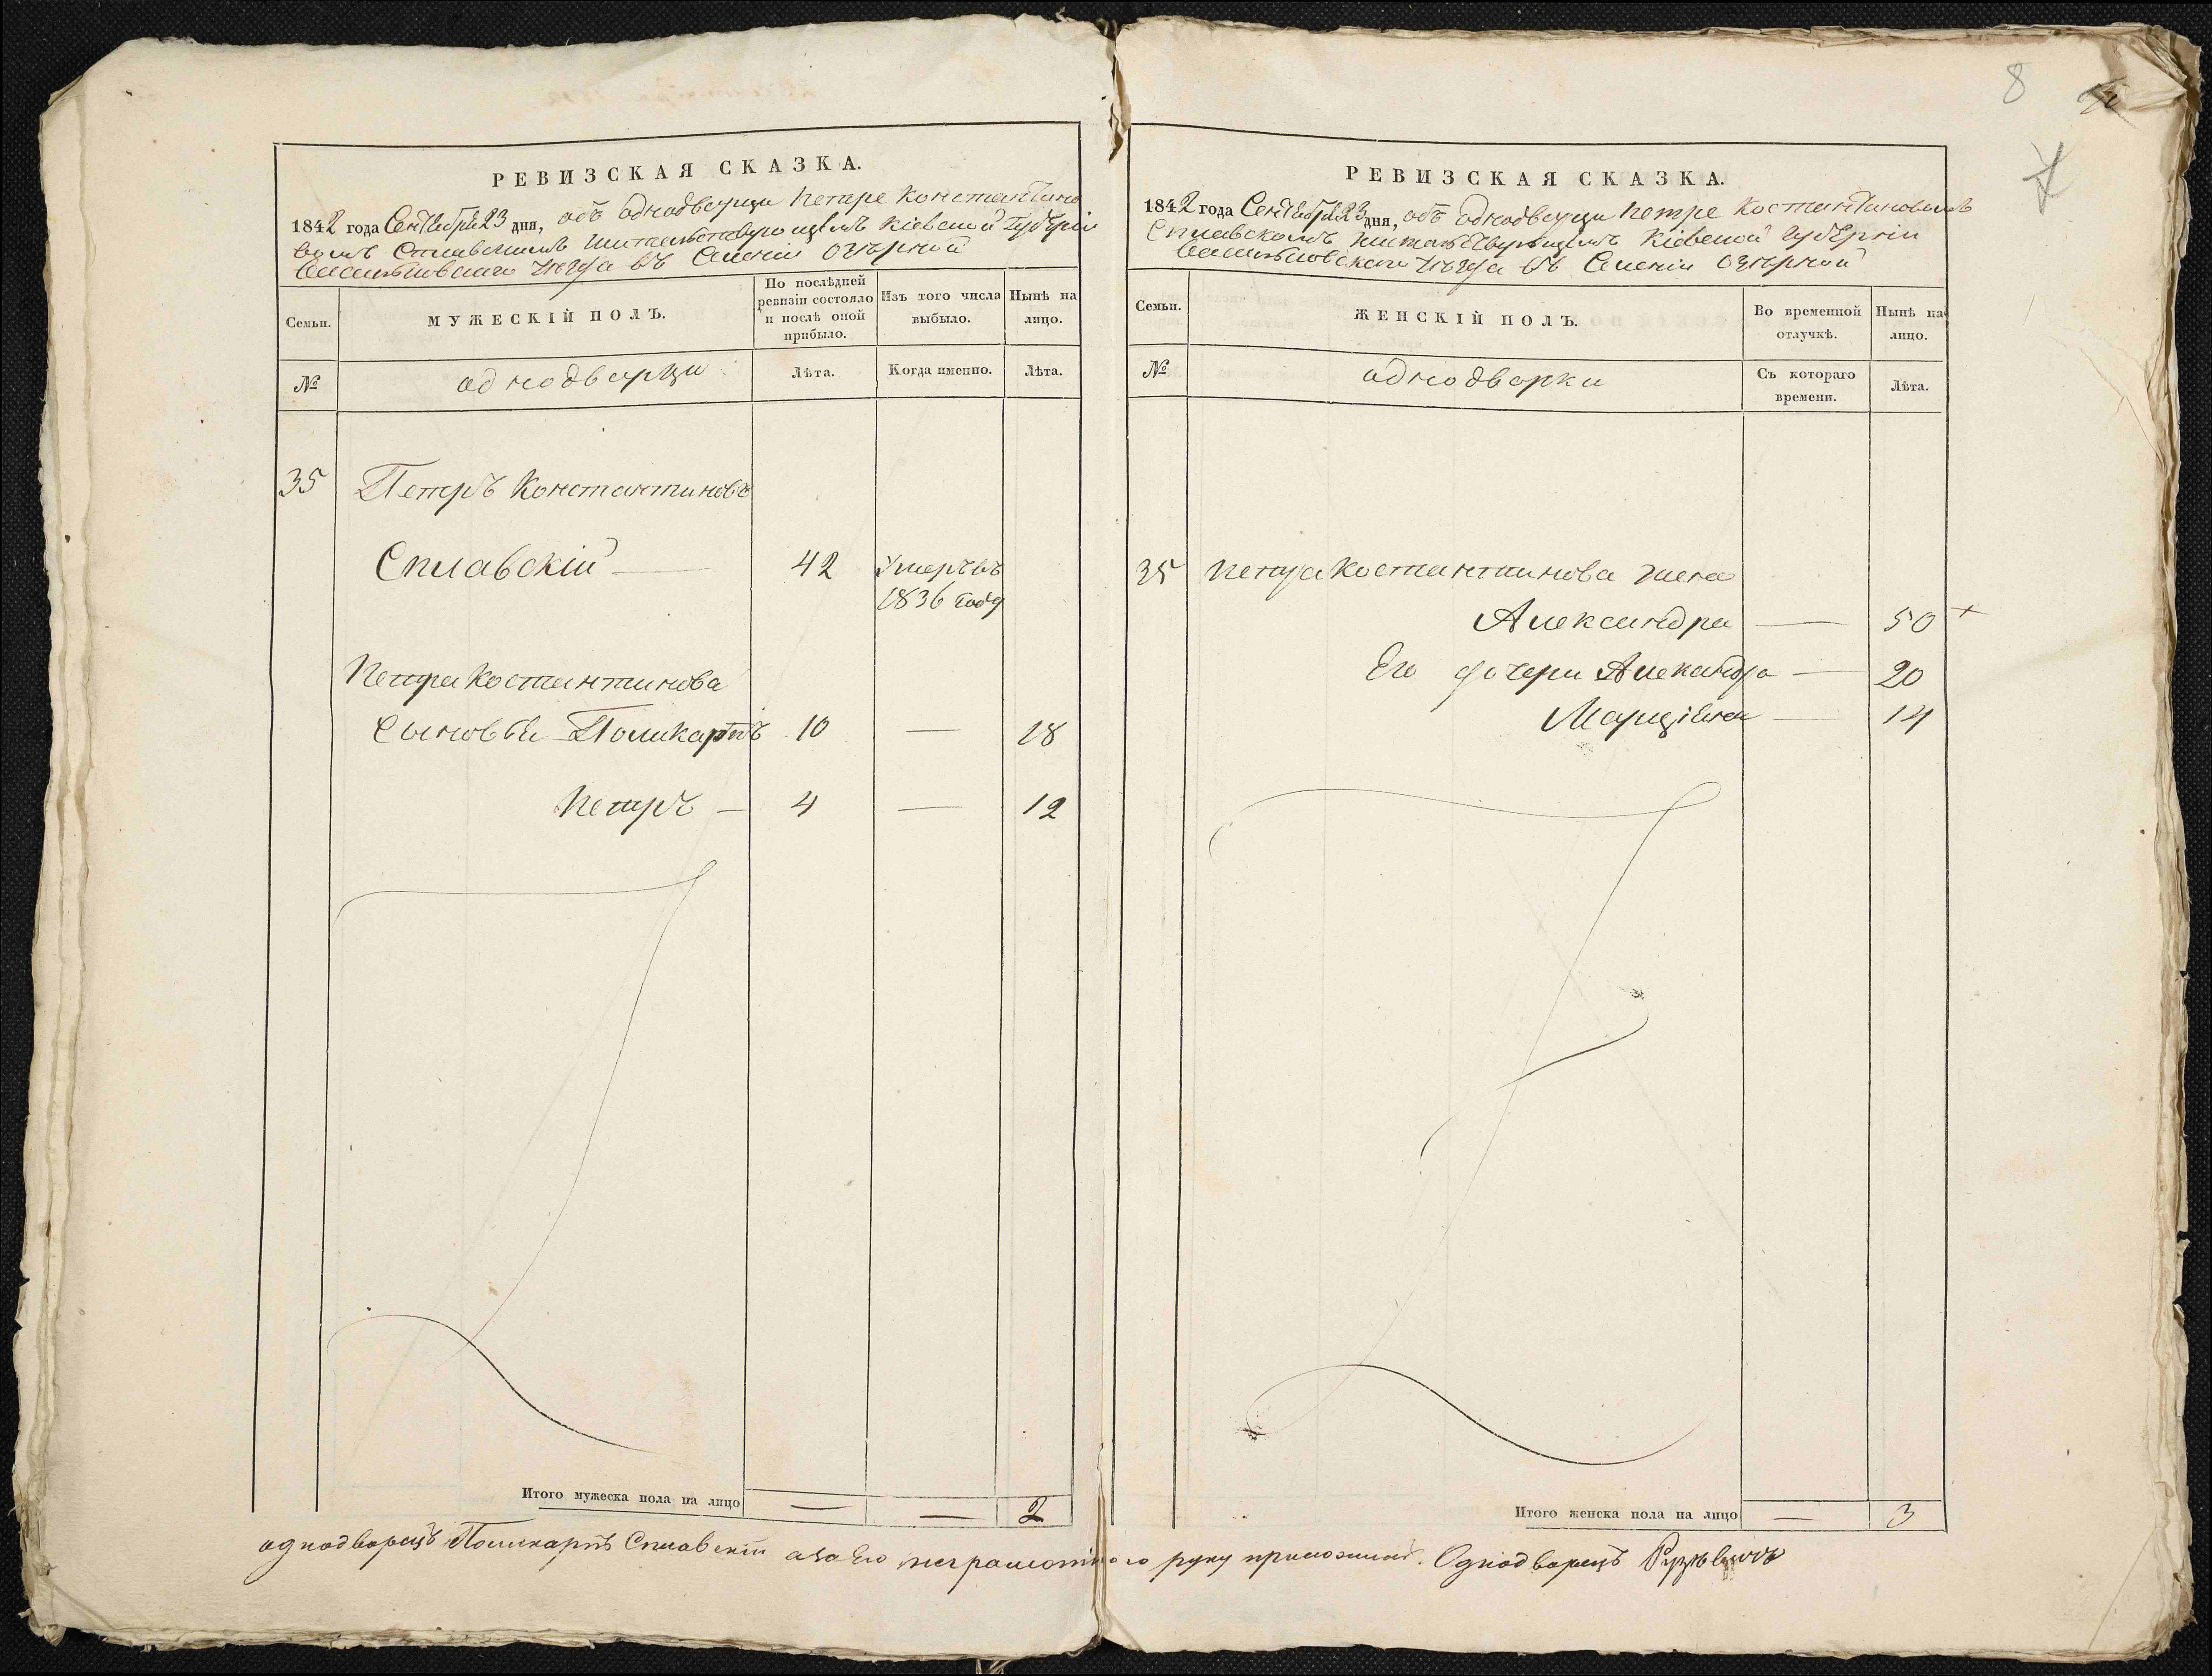 8
7
РЕВИЗСКАЯ СКАЗКА.
1842 года Сентября 23 дня, объ однодворце Петре Константино
вомъ Сплавскимъ жительствующемъ Кіевской Губерніи
Васильковского уезда въ Селеніи Озерной
Семьи.
МУЖЕСКІЙ ПОЛЪ.
По послѣдней ревизіи состояло и послѣ оной прибыло.
Изъ того числа выбыло.
Нынѣ на лицо.
№
однодворцы
Лѣта.
Когда именно.
Лѣта.
35 Петръ Константиновъ
Сплавскій — 42 Умеръ въ
1836 году
Петра Костантинова
Сыновья Поликарпъ 10 — 18
Петръ — 4 — 12
Итого мужеска пола на лицо — — 2
РЕВИЗСКАЯ СКАЗКА.
1842 года Сентября 23 дня, объ однодворце Петре Костантиновомъ
Сплавскомъ жительствующемъ Кіевской Губерніи
Васильковскаго уезда въ Селеніи Озерной
Семьи.
ЖЕНСКІЙ ПОЛЪ.
Во временной отлучкѣ.
Нынѣ на лицо.
№
однодворки
Съ котораго времени.
Лѣта.
35 Петра Костантинова жена
Александра — 50 +
Его дочери Александра — 20
Марціяна — 14
Итого женска пола на лицо — 3
однодворецъ Поликарпъ Сплавскій а за его неграмотного руку приложилъ. Однодворецъ